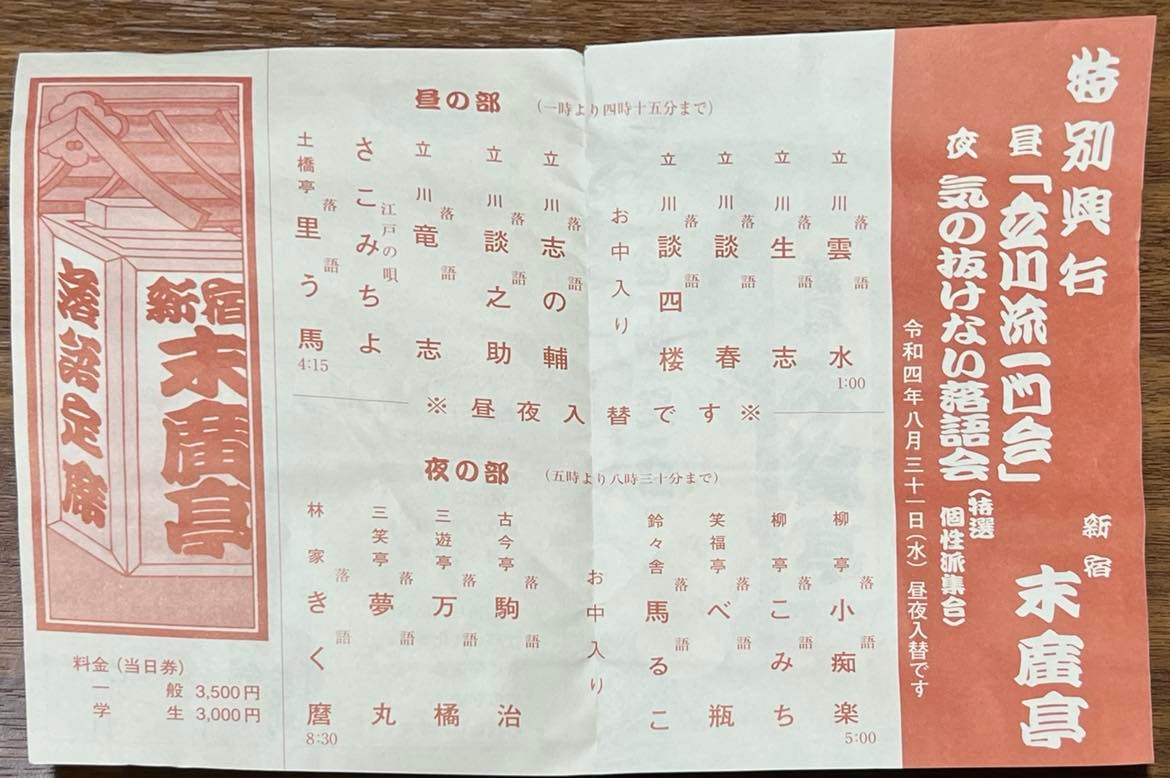 特別興行
昼「立川流一門会」
夜 気の抜けない落語会(特選 個性派集合)
新宿 末廣亭
令和四年八月三十一日(水) 昼夜入替です
昼の部 (一時より四時十五分まで)
落語 立川雲水 1:00
落語 立川生志
落語 立川談春
落語 立川談四楼
お中入り
落語 立川志の輔
落語 立川談之助
落語 立川竜志
江戸の唄 さこみちよ
落語 土橋亭里う馬 4:15
※昼夜入替です※
夜の部 (五時より八時三十分まで)
落語 柳亭小痴楽 5:00
落語 柳亭こみち
落語 笑福亭べ瓶
落語 鈴々舎馬るこ
お中入り
落語 古今亭駒治
落語 三遊亭万橘
落語 三笑亭夢丸
落語 林家きく麿 8:30
新宿
末廣亭
落語定席
料金(当日券)
一般 3,500円
学生 3,000円